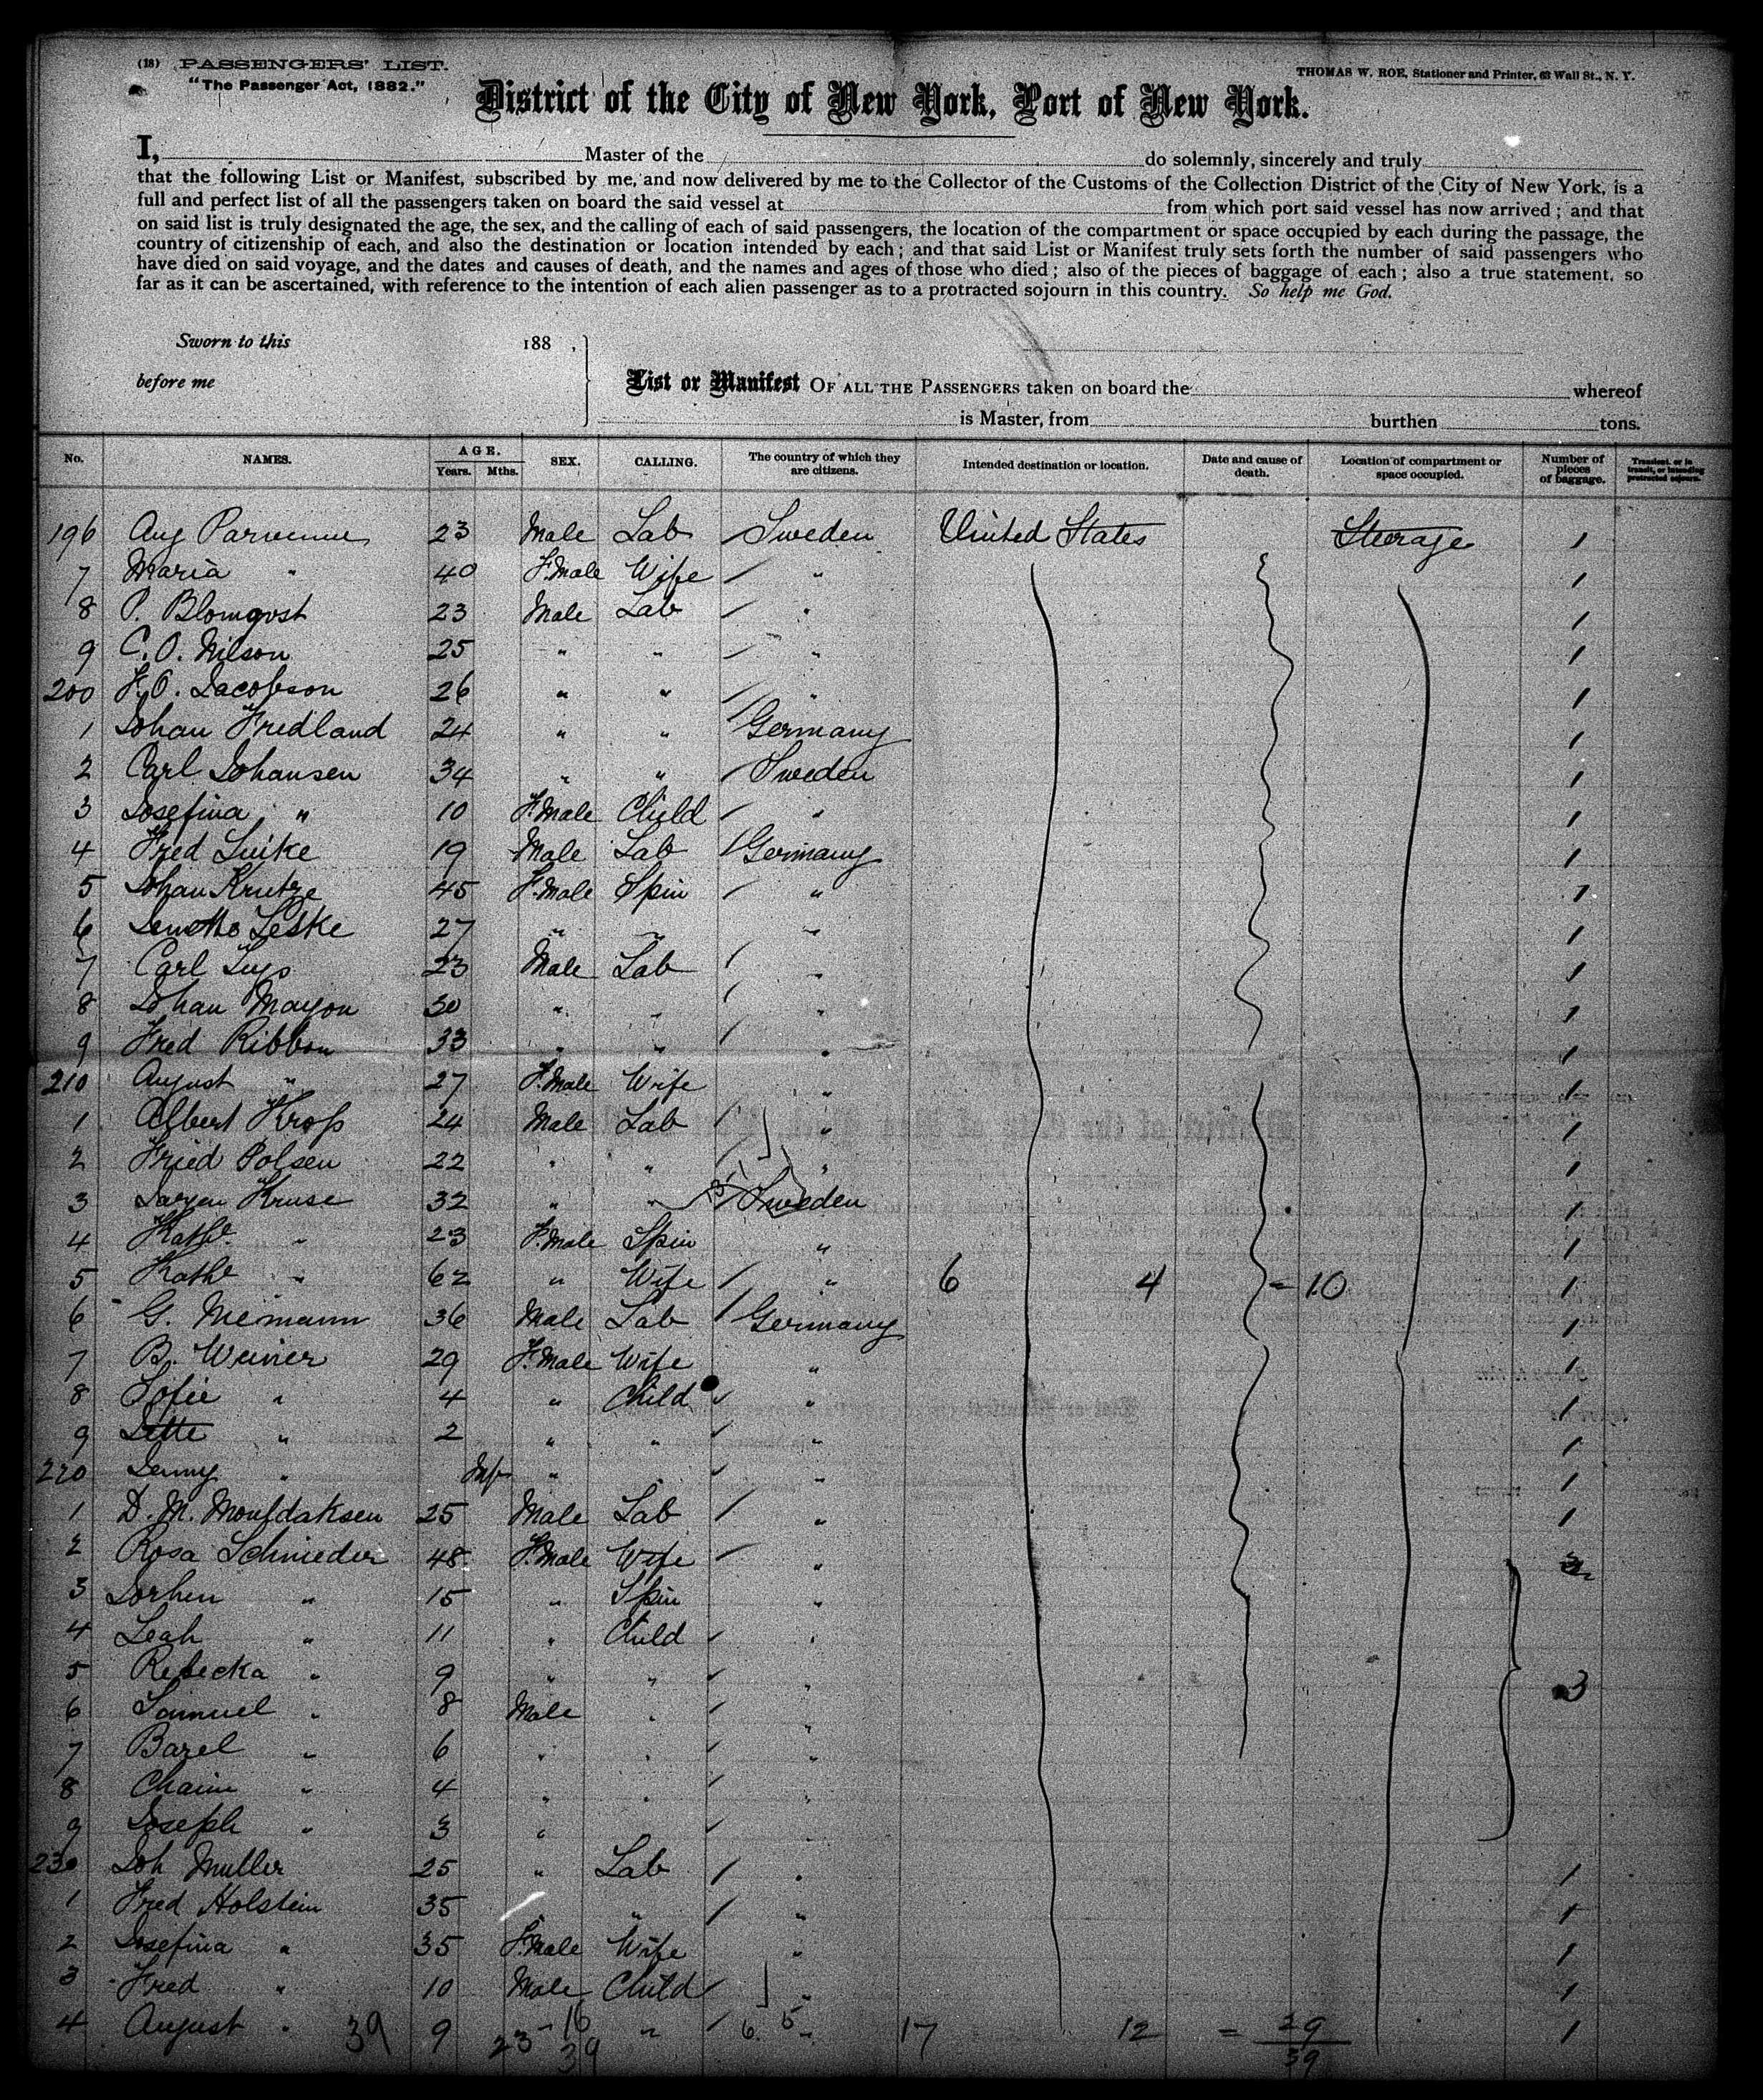 (18) PASSENGERS' LIST.
THOMAS W. ROE, Stationer and Printer, 63 Wall St., N. Y.
"The Passenger Act, 1882."
District of the City of New York, Port of New York.
I, Master of the do solemnly, sincerely and truly
that the following List or Manifest, subscribed by me, and now delivered by me to the Collector of the Customs of the Collection District of the City of New York, is a
full and perfect list of all the passengers taken on board the said vessel at from which port said vessel has now arrived; and that
on said list is truly designated the age, the sex, and the calling of each of said passengers, the location of the compartment or space occupied by each during the passage, the
country of citizenship of each, and also the destination or location intended by each; and that said List or Manifest truly sets forth the number of said passengers who
have died on said voyage, and the dates and causes of death, and the names and ages of those who died; also of the pieces of baggage of each; also a true statement, so
far as it can be ascertained, with reference to the intention of each alien passenger as to a protracted sojourn in this country. So help me God.
Sworn to this 188 ,
before me
List or Manifest OF ALL THE PASSENGERS taken on board the whereof
is Master, from burthen tons.
No. NAMES. AGE. Years. Mths. SEX. CALLING. The country of which they are citizens. Intended destination or location. Date and cause of death. Location of compartment or space occupied. Number of pieces of baggage. Transient, or in transit, or intending protracted sojourn.
196 Aug 23 Male Lab Sweden United States Steerage 1
7 Maria " 40 F.Male Wife " 1
8 P. Blomqvst 23 Male Lab " 1
9 C. O. Nilson 25 " " " 1
200 F. O. Jacobson 26 " " " 1
1 Johan Fredland 24 " " Germany 1
2 Carl Johansen 34 " " Sweden 1
3 Josefina " 10 F.Male Child " 1
4 Fred Luike 19 Male Lab Germany 1
5 Johan Krutze 45 F.Male Spin " 1
6 Leske 27 " " " 1
7 Carl 23 Male Lab " 1
8 Johan Mayon 30 " " " 1
9 Fred Ribbon 33 " " " 1
210 August " 27 F.Male Wife " 1
1 Albert Kross 24 Male Lab " 1
2 Fried Polsen 22 " " " 1
3 Kruse 32 " " Sweden 1
4 Kath " 23 F.Male Spin " 1
5 Kath " 62 " Wife " 6 4 = 10 1
6 G. Niemann 36 Male Lab Germany 1
7 B. Weiner 29 F.Male Wife " 1
8 Sofie " 4 " Child " 1
9 Jette " 2 " " " 1
220 Jenny " Inf " " 1
1 D. M. Mouldaksen 25 Male Lab " 1
2 Rosa Schnieder 48 F.Male Wife "
3 Dorhen " 15 " Spin "
4 Leah " 11 " Child "
5 Rebecka " 9 " " " 3
6 Samuel " 8 Male " "
7 Bazel " 6 " " "
8 Chaim " 4 " " "
9 Joseph " 3 " "
230 Joh Muller 25 " Lab " 1
1 Fred Holstein 35 " " 1
2 Josefina " 35 F.Male Wife " 1
3 Fred " 10 Male Child " 1
4 August " 39 9 " 16 " 6. 5 " 17 12 = 29 1
23 39 39